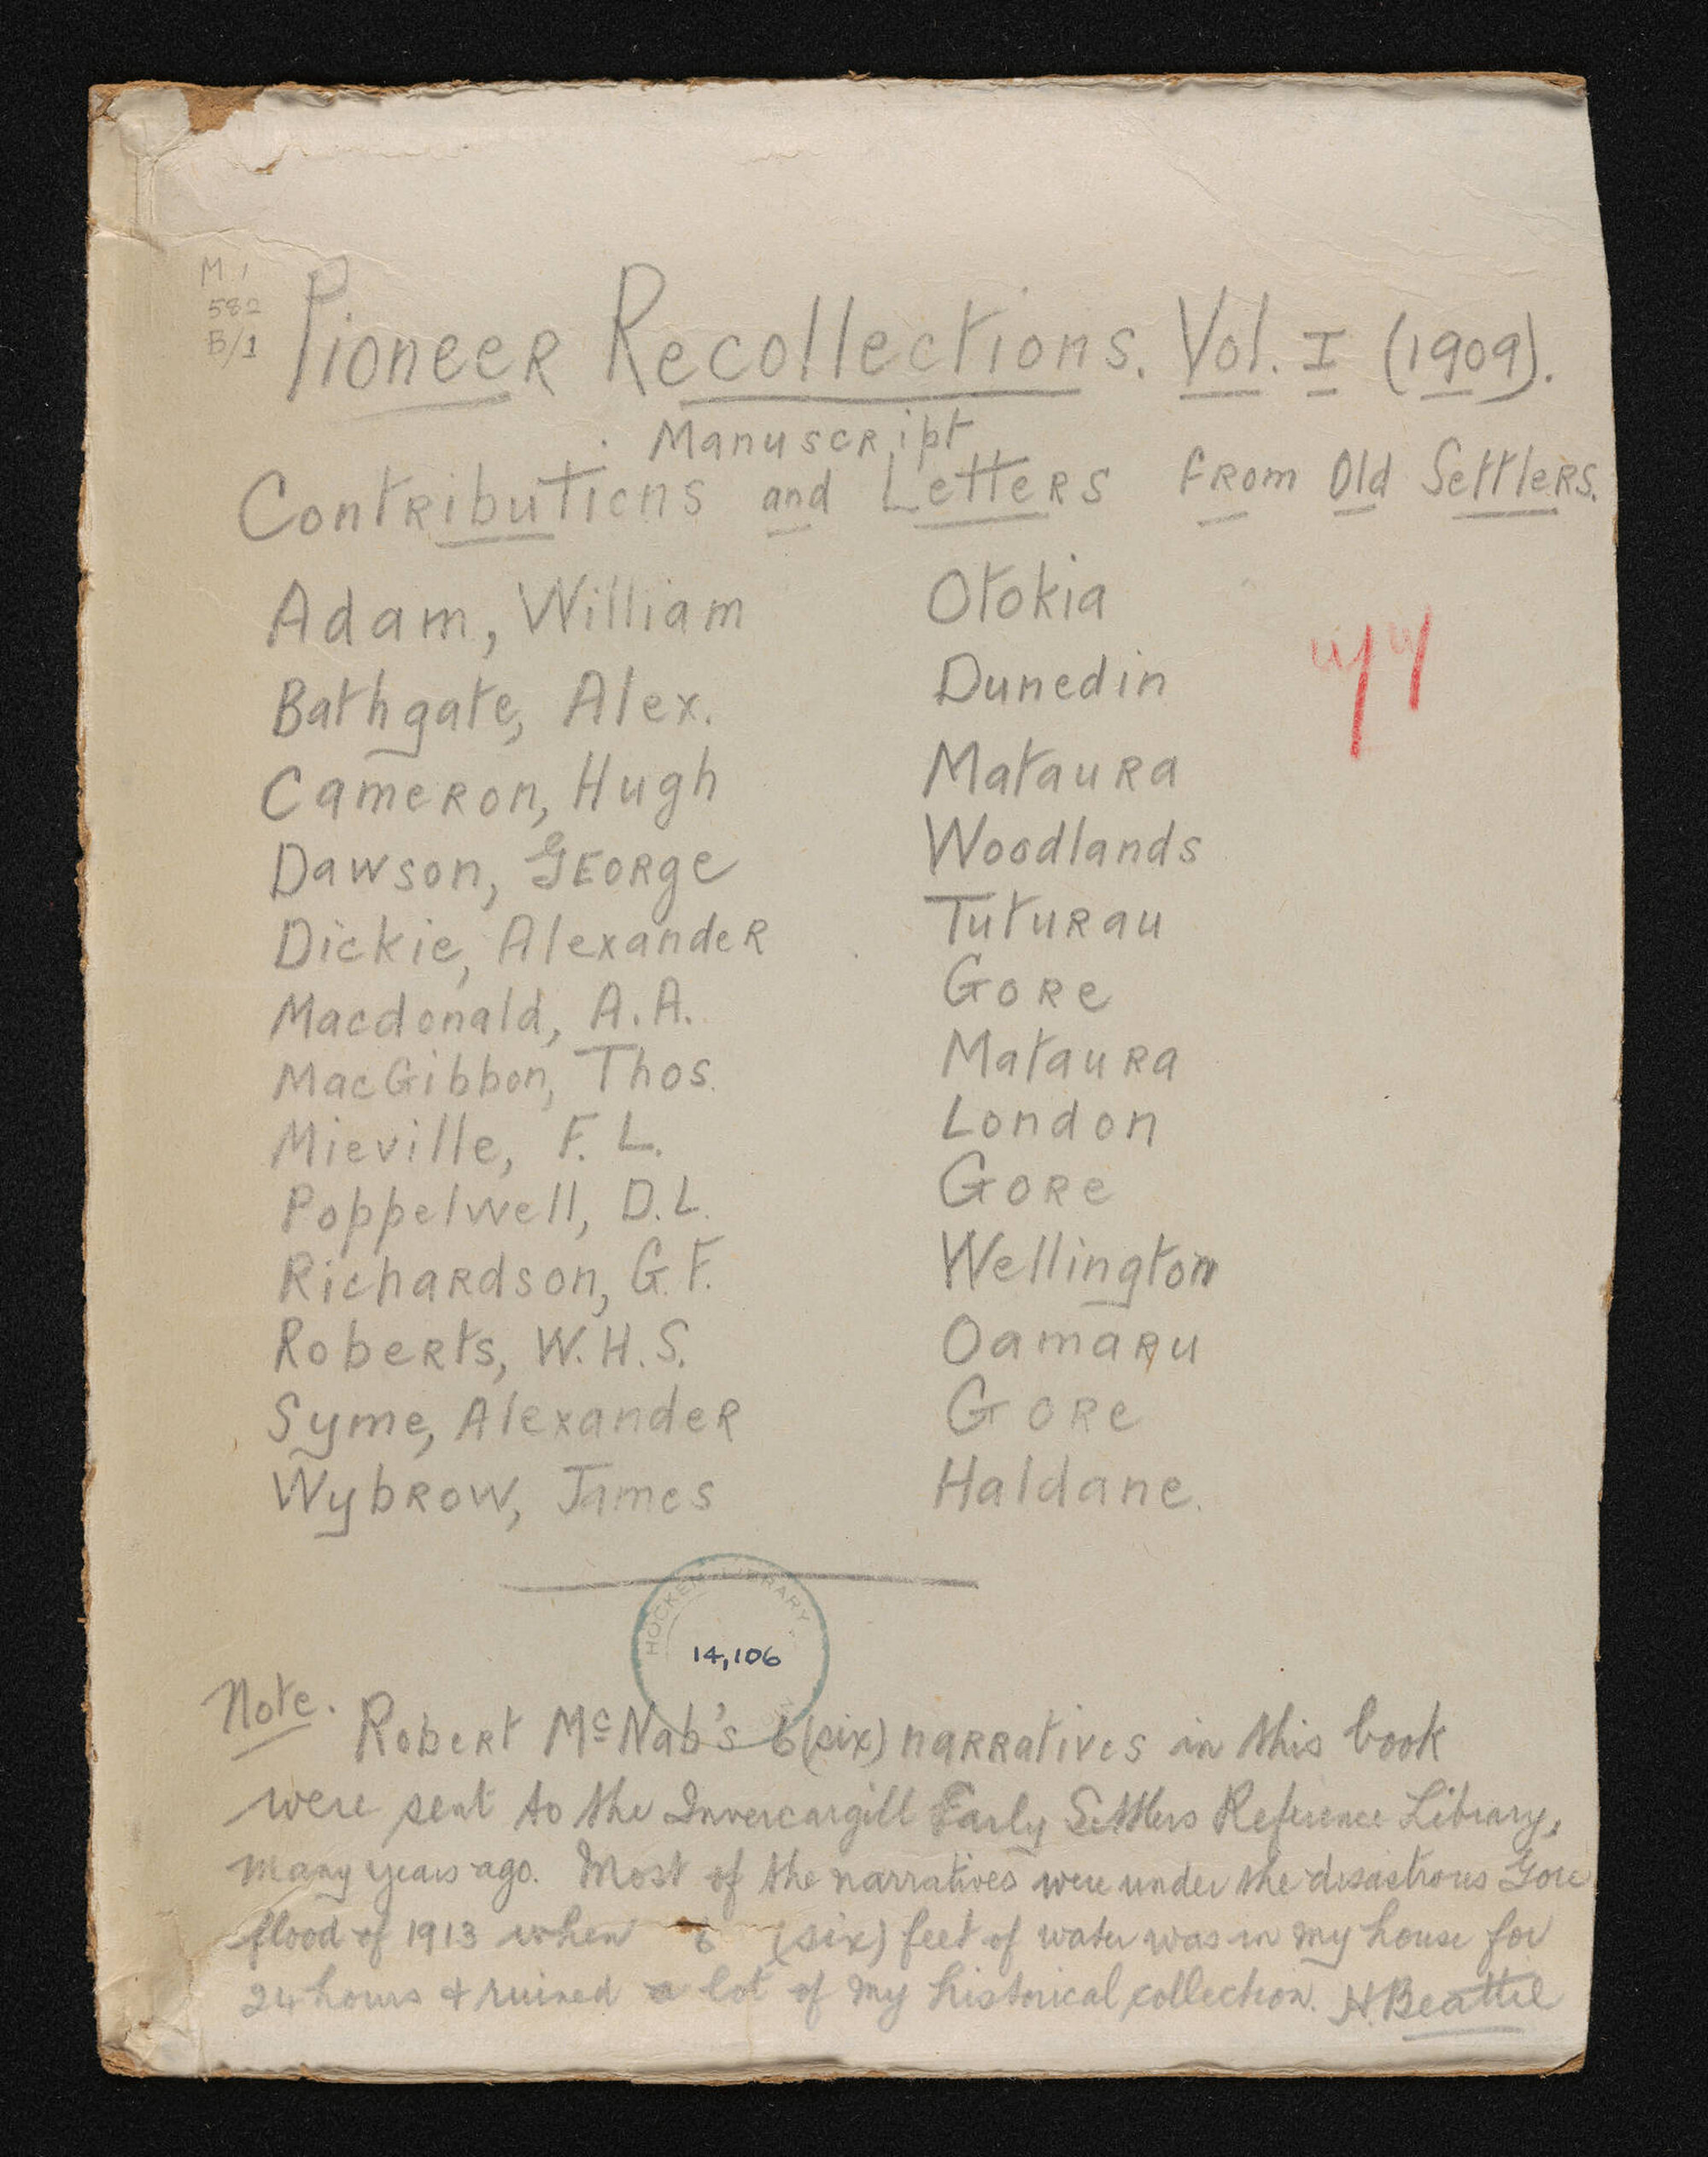 M 1
582
B/1
Pioneer Recollections. Vol. I (1909).
Manuscript
Contributions and Letters from Old Settlers.
Adam, William Otokia
Bathgate, Alex. Dunedin
Cameron, Hugh Mataura
Dawson, George Woodlands
Dickie, Alexander Tuturau
Macdonald, A.A. Gore
MacGibbon, Thos. Mataura
Mieville, F. L. London
Poppelwell, D.L. Gore
Richardson, G.F. Wellington
Roberts, W.H.S. Oamaru
Syme, Alexander Gore
Wybrow, James Haldane.
HOCKEN LIBRARY
14,106
Note. Robert McNab's 6 (six) narratives in this book
were sent to the Invercargill Early Settlers Reference Library,
many years ago. Most of the narratives were under the disastrous Gore
flood of 1913 when 6 (six) feet of water was in my house for
24 hours & ruined a lot of my historical collection. H. Beattie